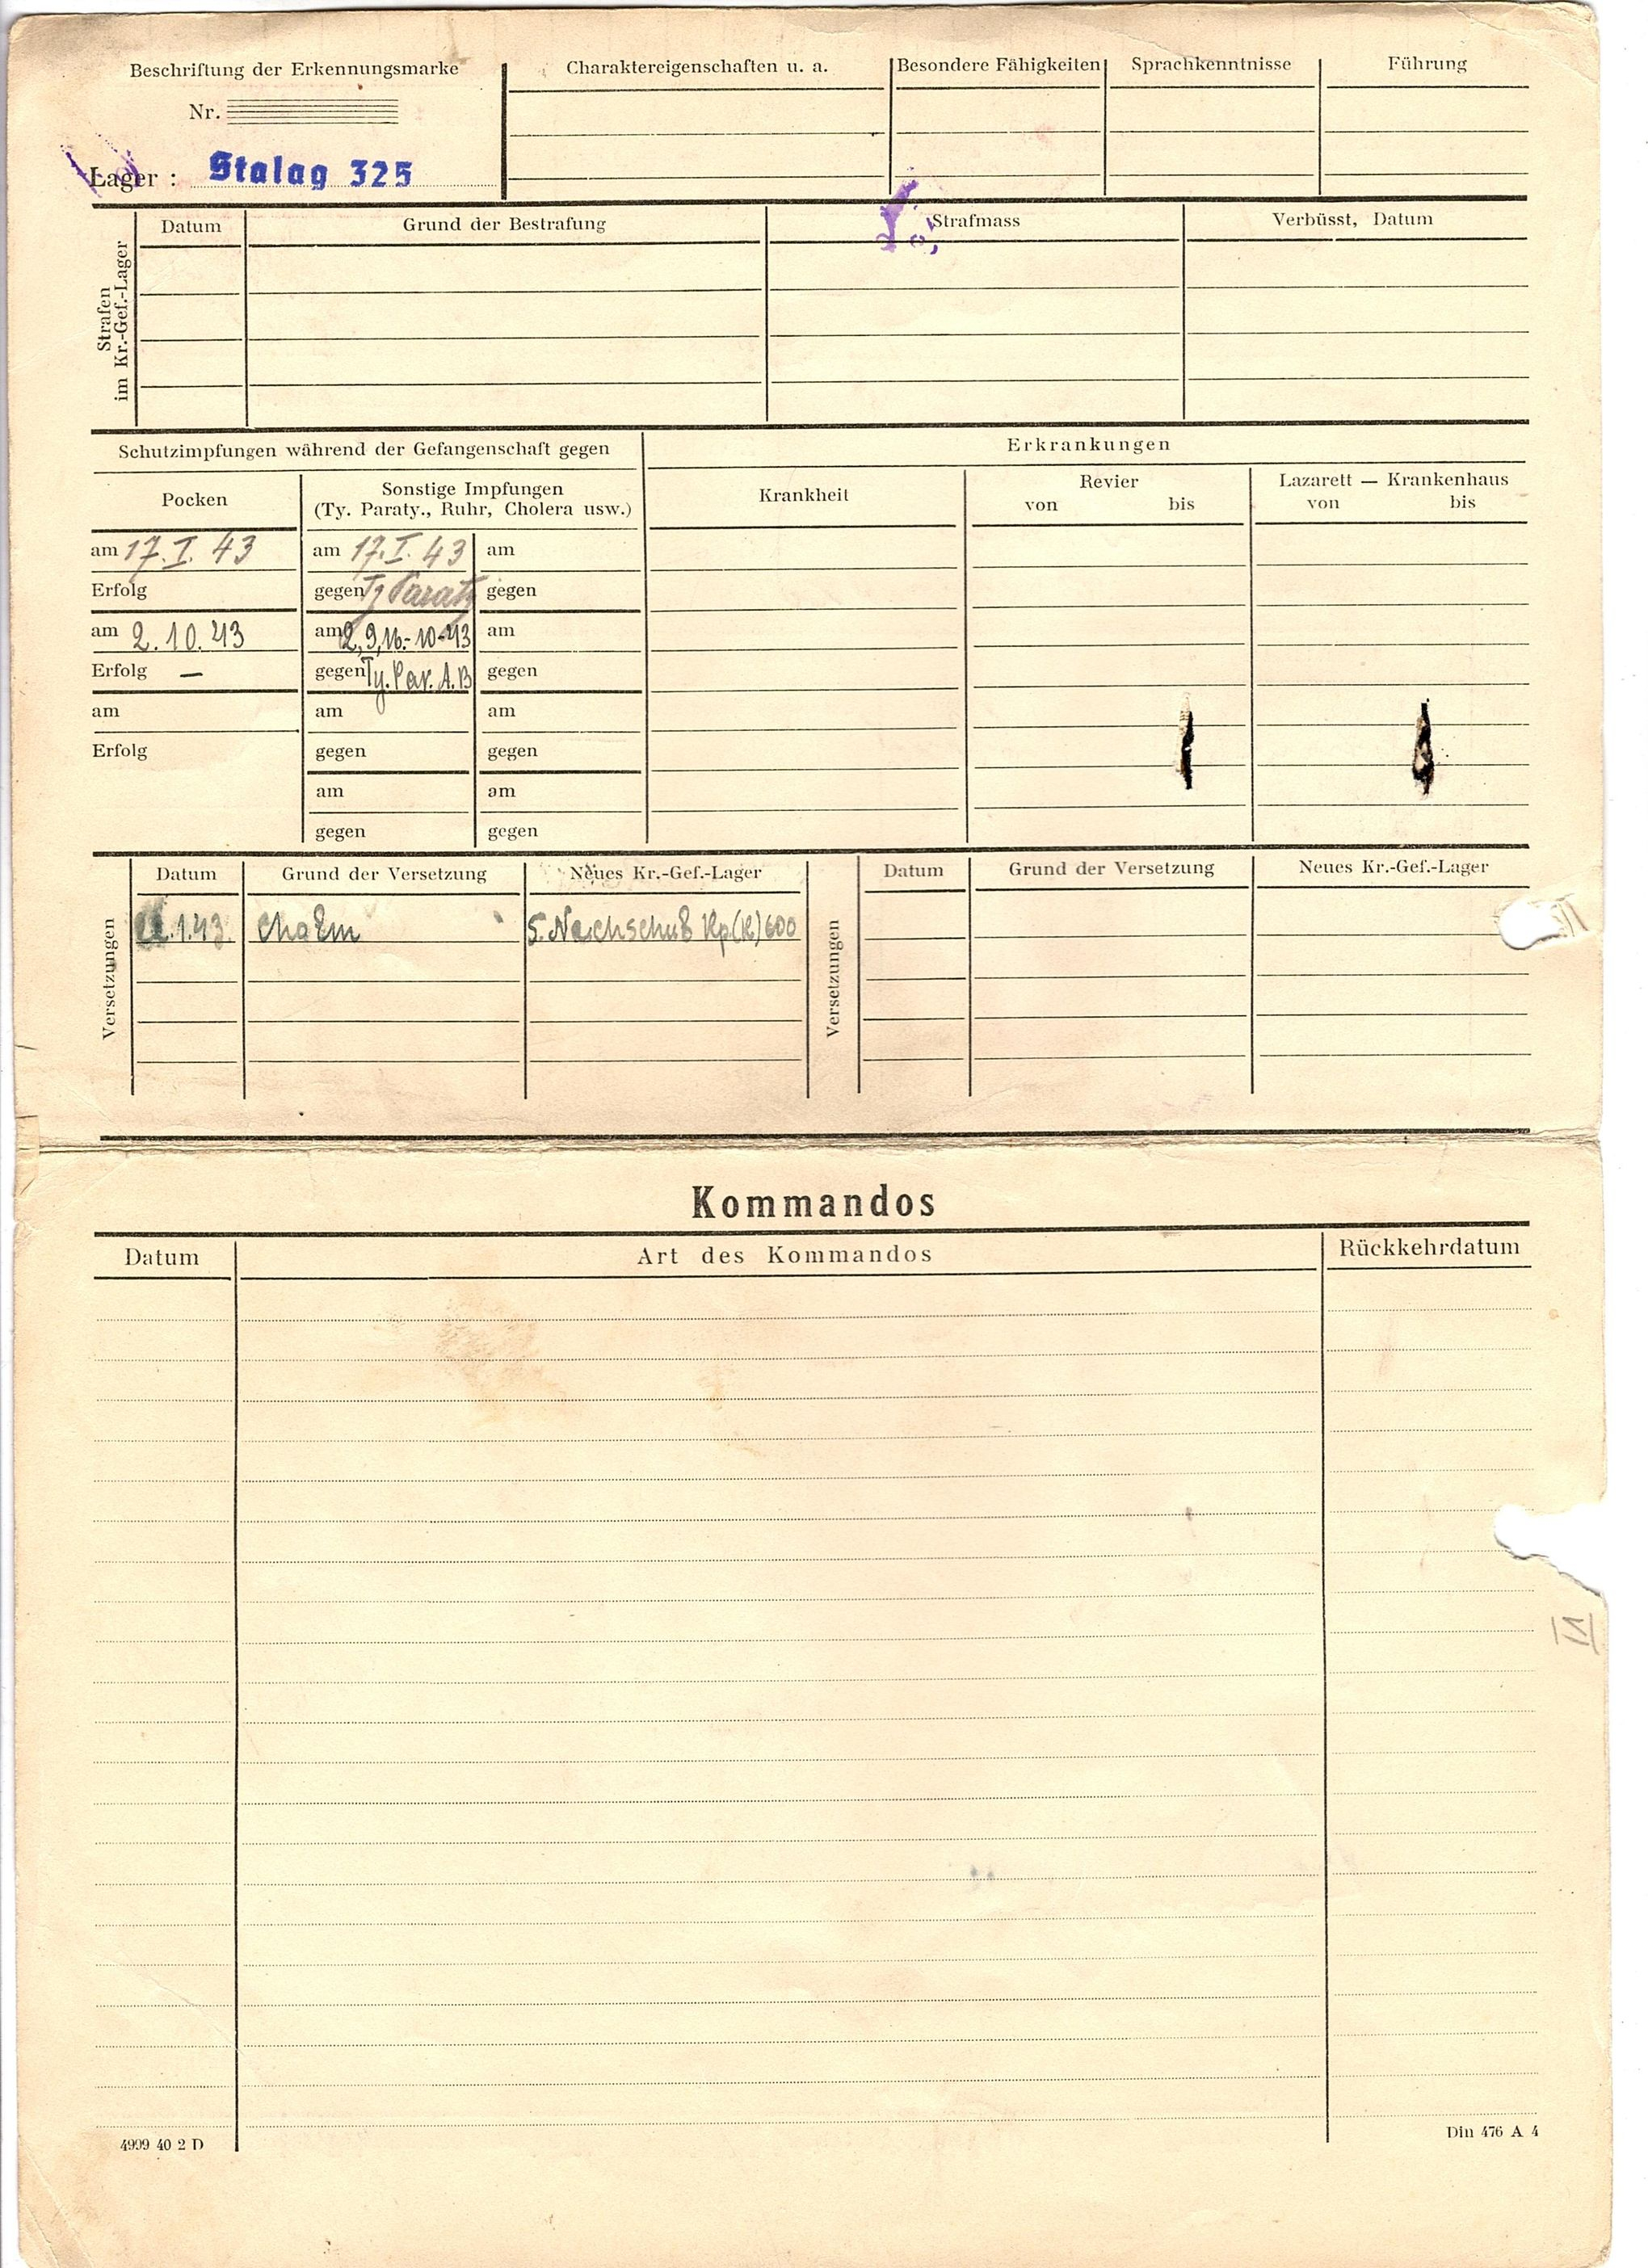 Beschriftung der Erkennungsmarke
Nr.
Lager : Stalag 325
Charaktereigenschaften u. a.
Besondere Fähigkeiten
Sprachkenntnisse
Führung
Strafen
im Kr.-Gef.-Lager
Datum
Grund der Bestrafung
Strafmass
Verbüsst, Datum
Schutzimpfungen während der Gefangenschaft gegen
Erkrankungen
Pocken
Sonstige Impfungen
(Ty. Paraty., Ruhr, Cholera usw.)
Krankheit
Revier
von bis
Lazarett — Krankenhaus
von bis
am 17.I.43 am 17.I.43 am
Erfolg gegen Ty Paraty gegen
am 2.10.43 am 2,9,16.-10-43 am
Erfolg — gegen Ty. Par. A.B gegen
am am am
Erfolg gegen gegen
am am
gegen gegen
Versetzungen
Datum Grund der Versetzung Neues Kr.-Gef.-Lager
.1.43. 5. Nachschub Kp(K)600
Versetzungen
Datum Grund der Versetzung Neues Kr.-Gef.-Lager
Kommandos
Datum Art des Kommandos Rückkehrdatum
4999 40 2 D
Din 476 A 4